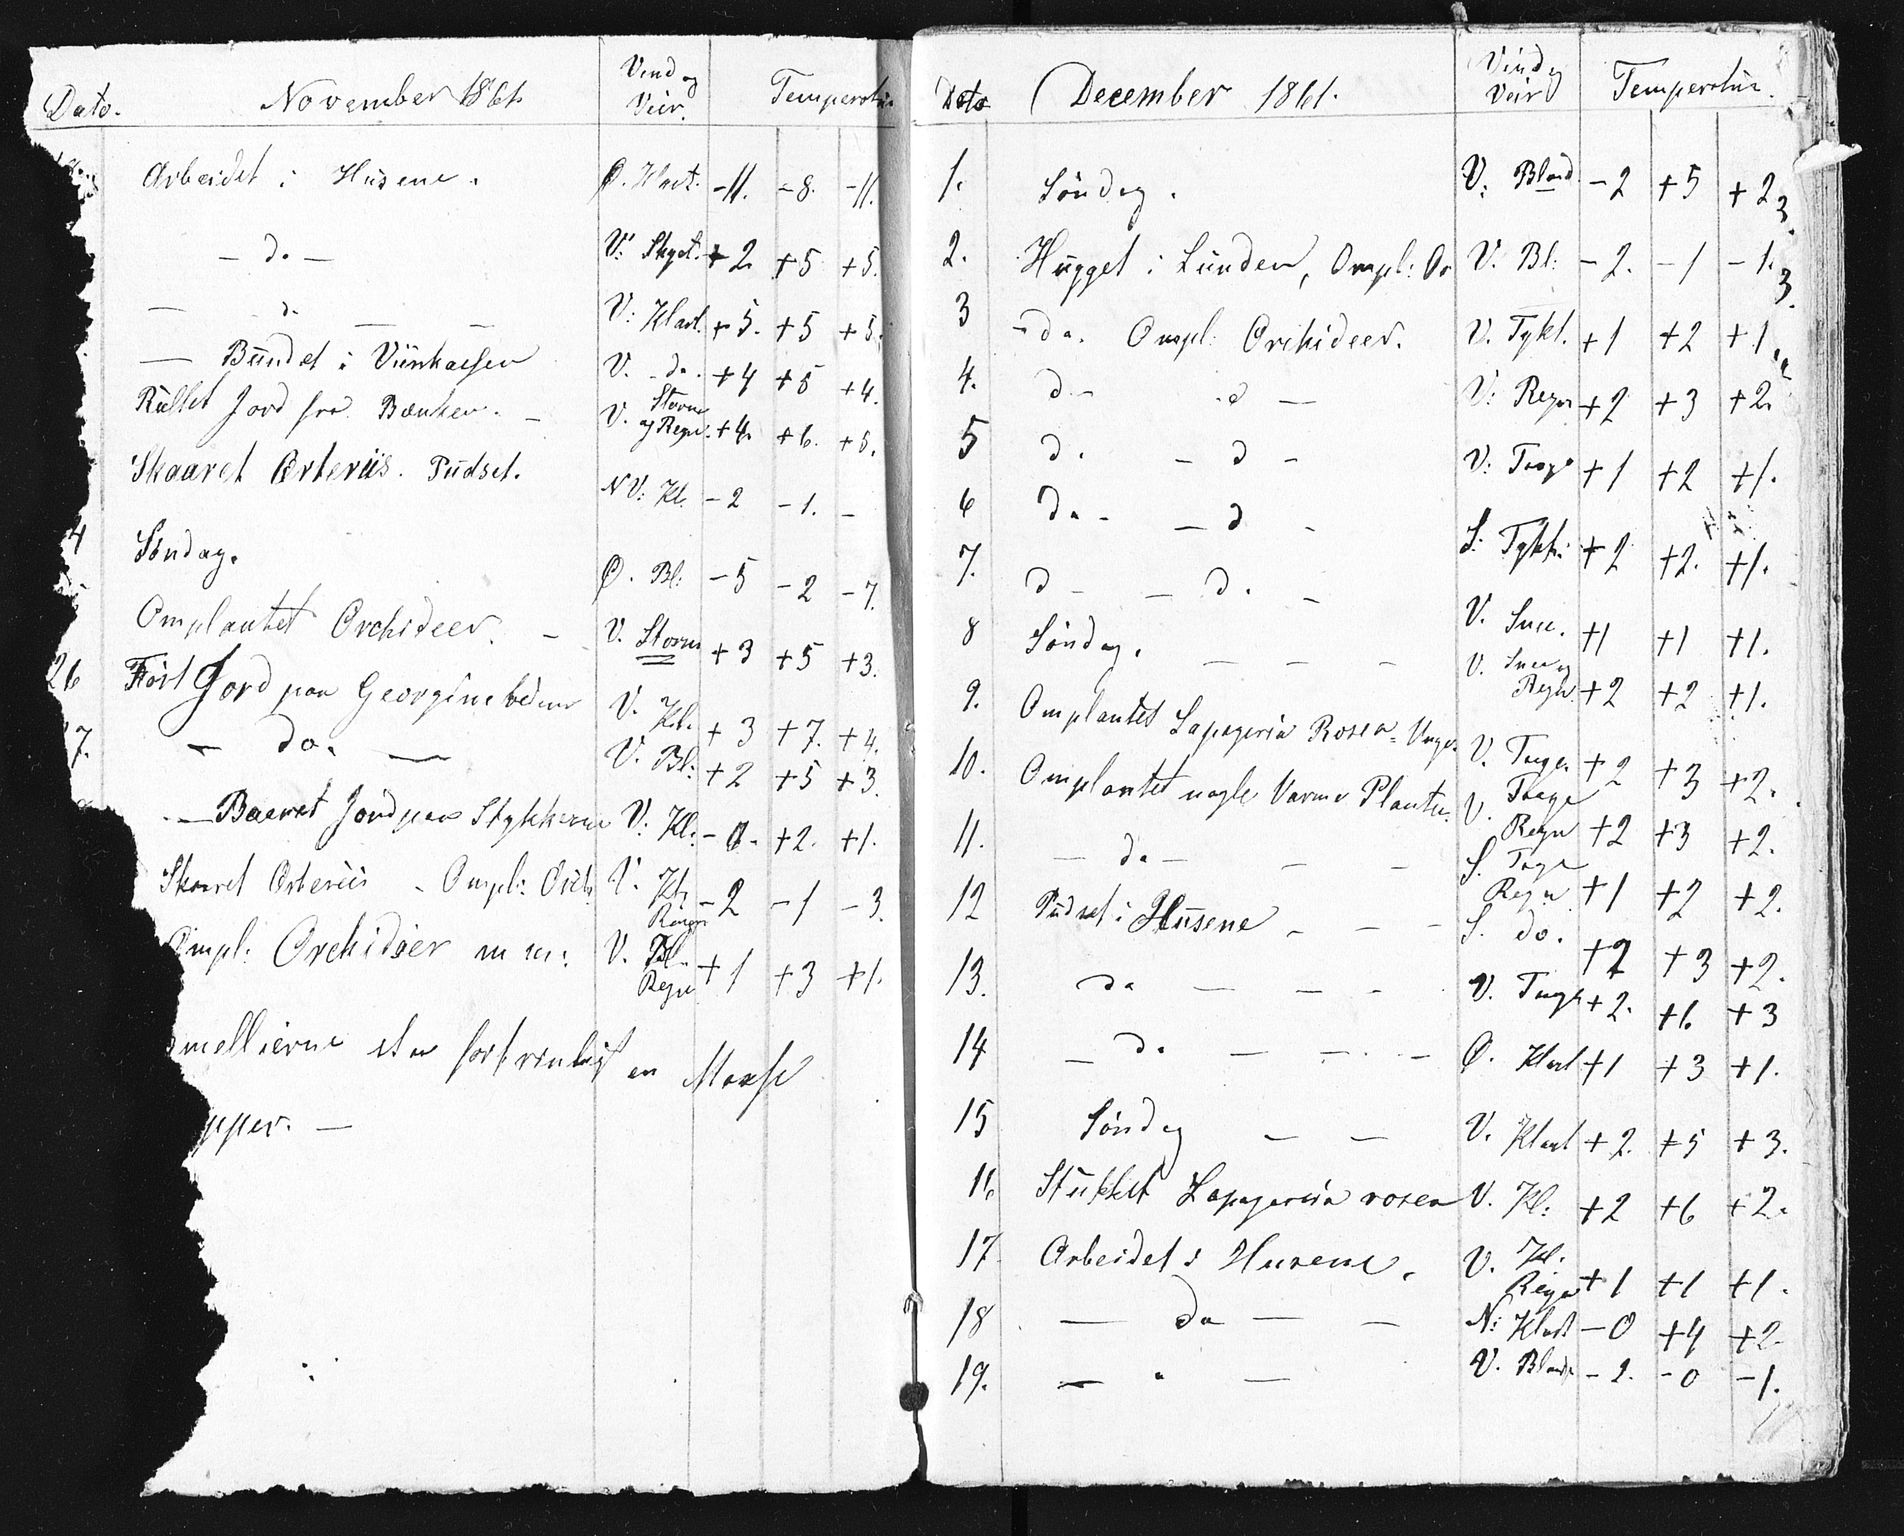 Dato. November 1861. Vind og Veir. Temperatur
Arbeidet i Husene. Ø. Klart. -11. -8. -11.
- do - V: +2. +5 +5.
- do - - V: Klart. +5. +5 +5.
- Bundet i Viinkassen V. - do. +4 +5 +4.
Rullet Jord fra Bænken. - V. Storm og Regn. +4. +6. +5.
Skaaret Pudset. NV: Kl. -2 -1. -
4 Søndag. Ø. Bl: -5 -2 -7.
Omplantet Orchideer. - V. Storm +3 +5 +3.
26 Ført Jord paa V. Kl. +3 +7. +4.
7. - do. - V. Bl: +2 +5 +3.
- Baaret Jord paa Stykkerne V: Kl: -0. +2. +1.
Skaaret - Ompl: Orch: V. Kl. -2 -1 -3.
Ompl: Orchideer m m: V. Bl. Regn +1 +3 +1.
mellierne
pper. -
Dato December 1861. Vind og Veir Temperatur.
1. Søndag. V: Bland. -2 +5 +2
2. Hugget i Lunden, Ompl: Or V. Bl: -2. -1 -1.
3 - do. Ompl: Orchideer. V. Tykt. +1 +2 +1
4. d - d - V: Regn +2 +3 +2.
5 d. - d - V: Taage +1 +2 +1.
6 do - - d - S: Tykt: +2 +2. +1.
7. d - - d. - V. Snee. +1 +1 +1.
8 Søndag. - - - V. Snee og Regn +2 +2 +1.
9. Omplantet Lapageria Rosea - V. Taage. +2 +3 +2.
10. Omplantet nogle Varme Planter. V. Taage Regn +2 +3 +2.
11. - do - - - S. Taage Regn +1 +2 +2.
12 Pudset i Husene - - - S. do. +2 +3 +2.
13. do - - - V. Taage +2. +6 +3
14 - do - - - Ø. Klart +1 +3 +1.
15 Søndag - - V. Klart +2. +5 +3.
16 Lapageria rosea V. Kl: +2 +6 +2.
17 Arbeidet i Husene. V. Kl. Regn +1 +1 +1.
18 - do - - N: Klart -0 +4 +2
19. - " - V. Bland. -2. -0 -1.